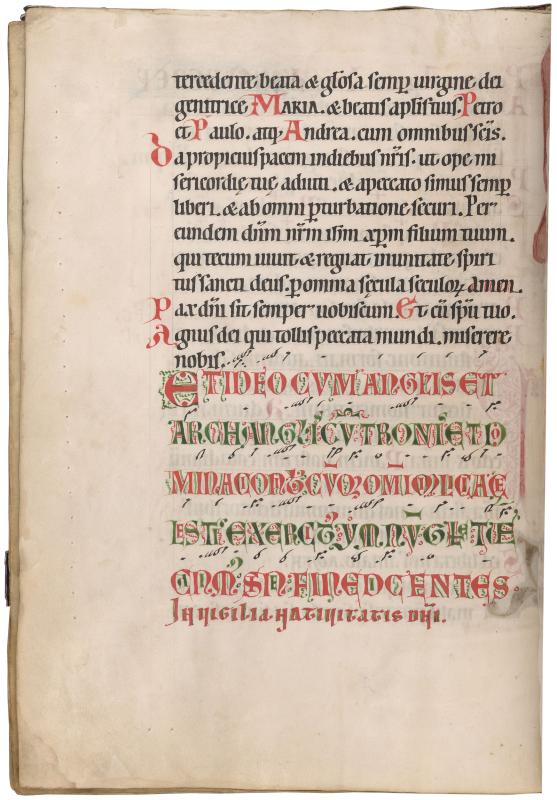 tercedente beata & gl̄osa semp uirgine dei
genitrice MARIA. & beatis apl̄is tuis. Petro
et Paulo. atq; Andrea. cum omnibus sc̄is.
Da propicius pacem in diebus nr̄is. ut ope mi
sericordie tuę adiuti. & a peccato simus semp
liberi. & ab omni pturbatione securi. Per
eundem dn̄m nr̄m ih̄m xp̄m filium tuum.
qui tecum uiuit & regnat in unitate spirit
tus sancti deus. p omnia sęcula seculoꝝ amen.
Pax dn̄i sit semper uobiscum Et cū sp̄u tuo.
Agnus dei qui tollis peccata mundi. miserere
nobis.
ET IDEO CVM ANGLIS ET
ARCHANGLIS CV TRONIS ET DO
MINACONIB CVQ OMI MILICA CAE
LESTIS EXERCITVYMNV GLE TVE
CANIM SN FINE DICENTES
In vigilia nativitatis dn̄i.